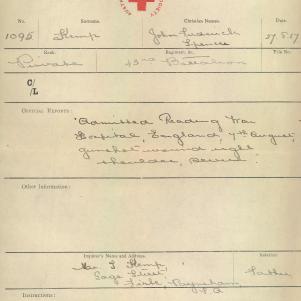 SOCIETY
No. Surname. Christian Names. Date.
1095 Stemp John Frederick 27.8.17
Spencer
Rank. Regiment, &c. File No.
Private 43rd Battalion
C/L
OFFICIAL REPORTS:
"Admitted Reading War
Hospital, England, 7th August,
gunshot wound right
shoulder, severe."
Other Information:
Inquirer's Name and Address. Relation
Mr. J. Stemp Father
Street
Firle, Payneham,
S.A.
Instructions: